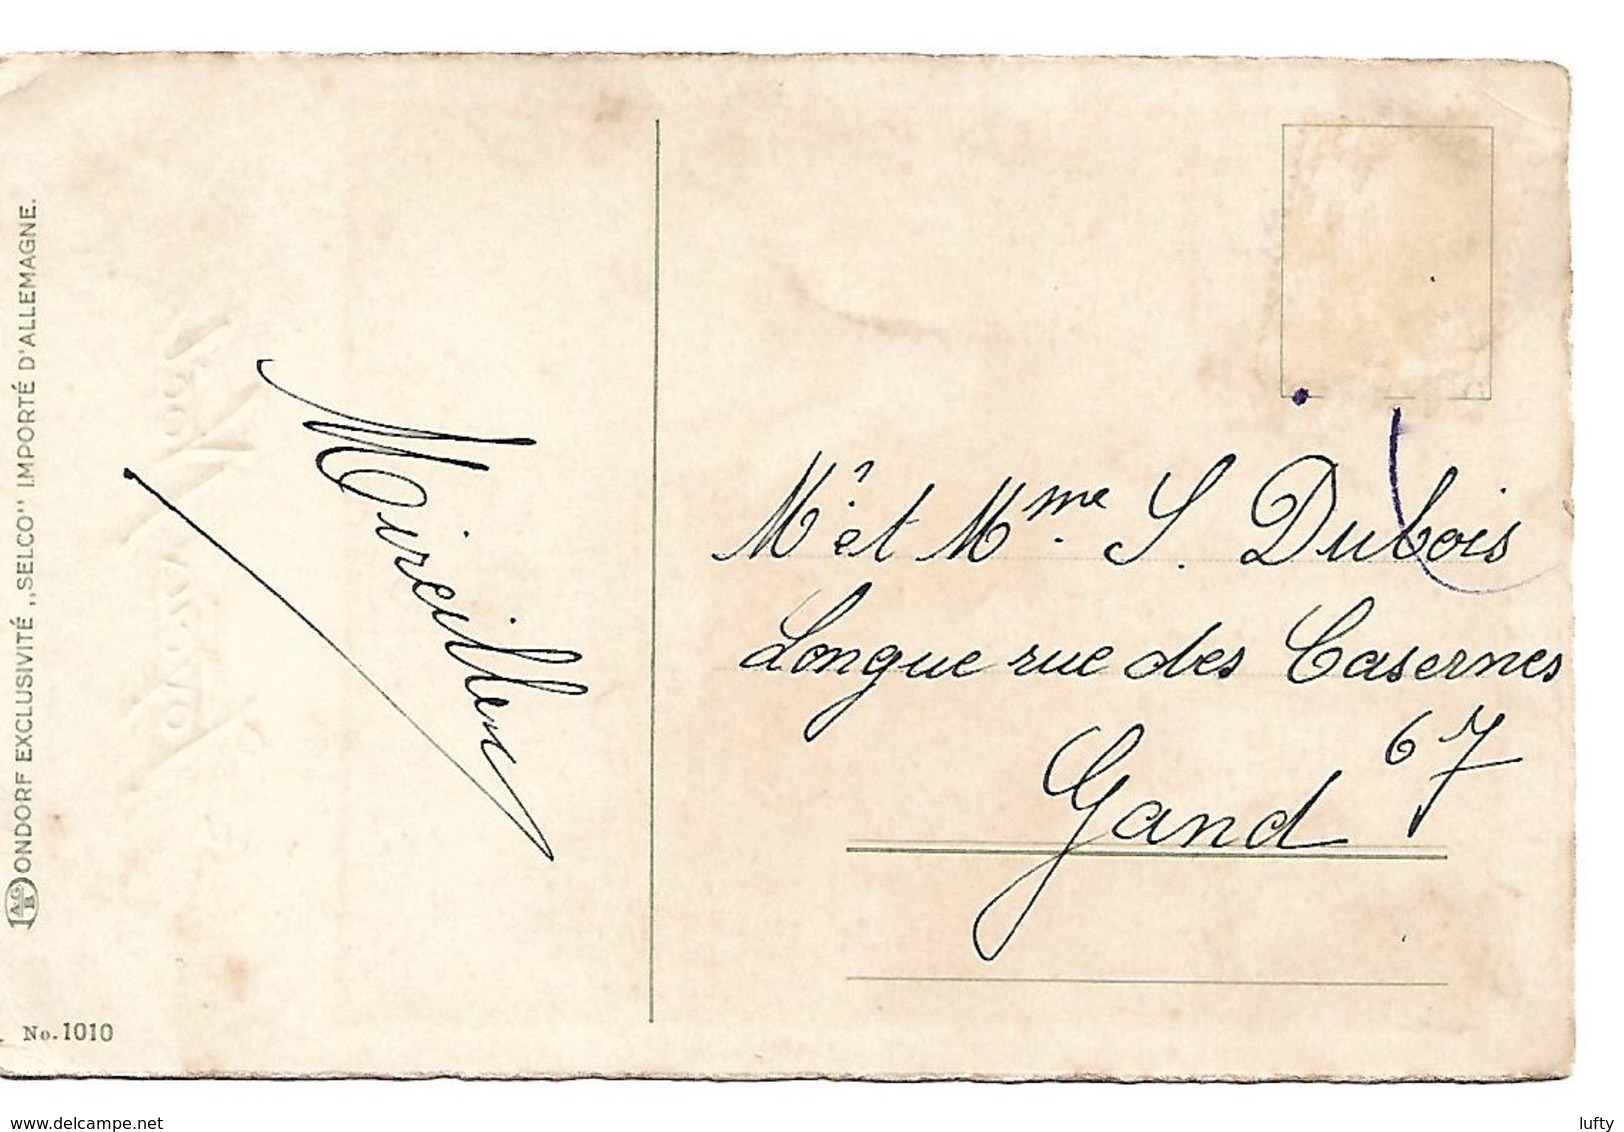 ONDORF EXCLUSIVITÉ „SELCO" IMPORTÉ D'ALLEMAGNE.
AGB
No. 1010
Mireille
Mr et Mme. S. Dubois
Longue rue des Casernes
67
Gand
www.delcampe.net
lufty